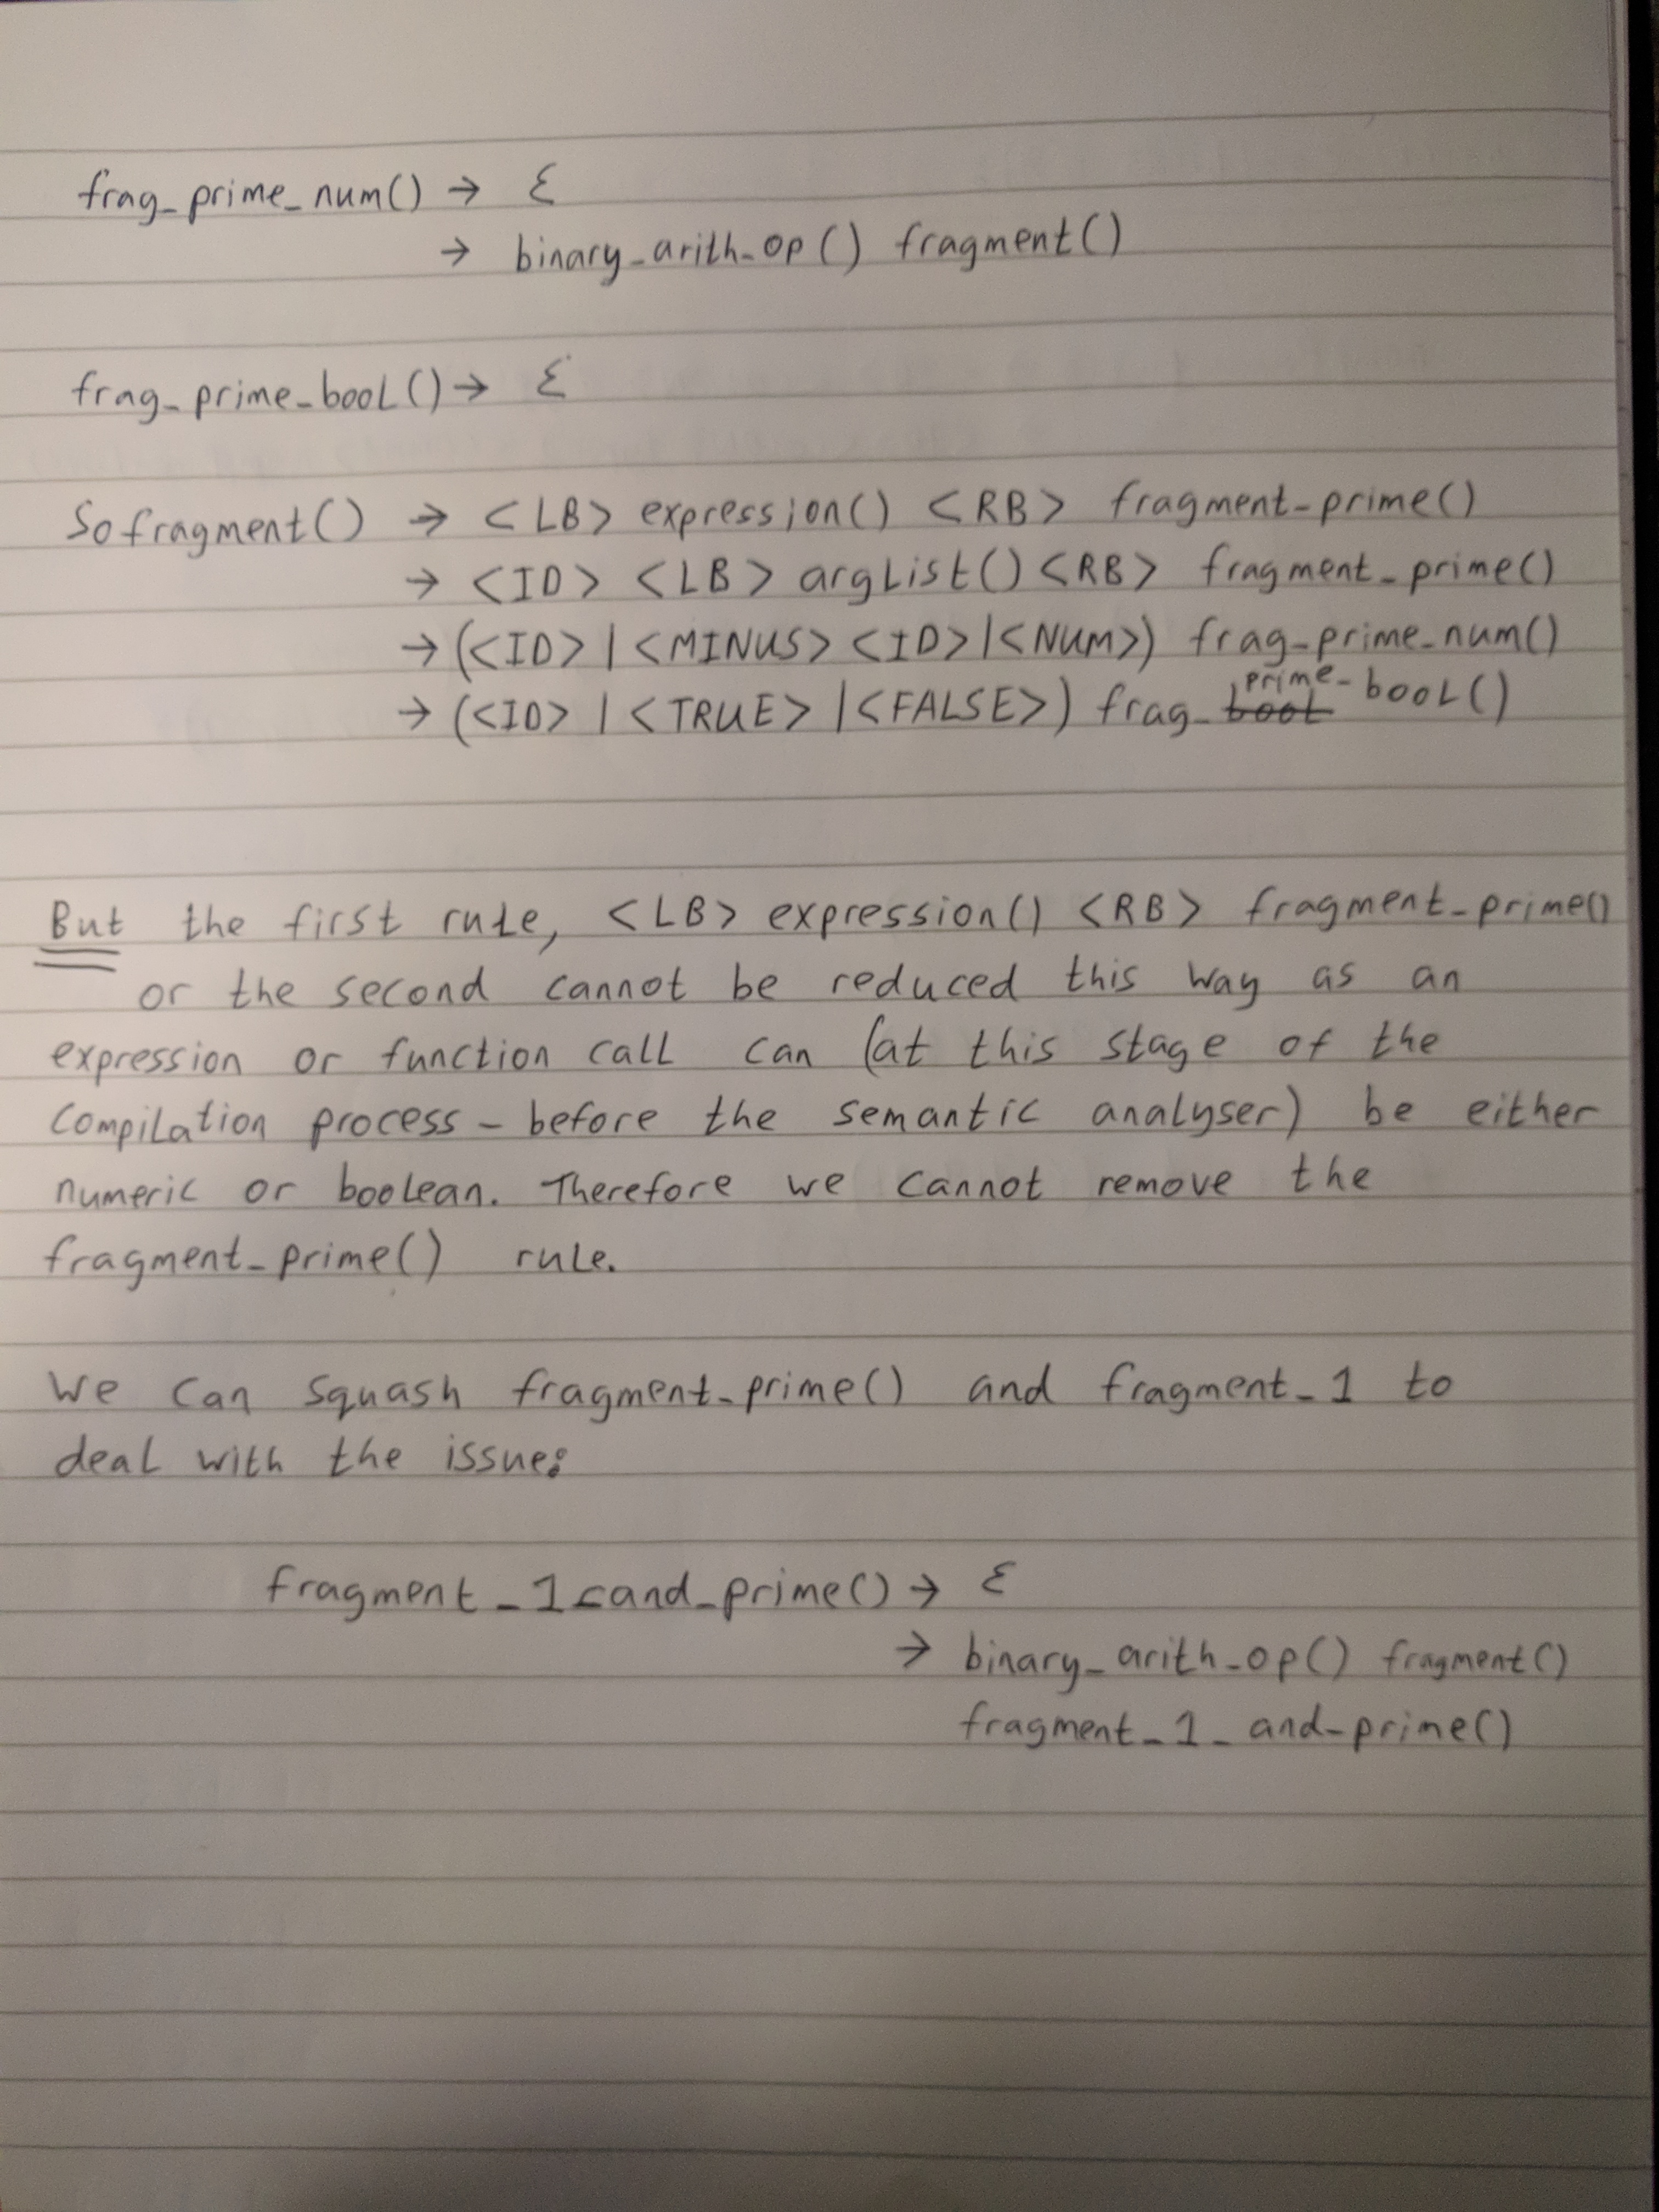 frag_prime_num() → ε
→ binary_arith_op() fragment()
frag_prime_bool() → ε
So fragment() → <LB> expression() <RB> fragment_prime()
→ <ID> <LB> argList() <RB> fragment_prime()
→ (<ID> | <MINUS> <ID> | <NUM>) frag_prime_num()
→ (<ID> | <TRUE> | <FALSE>) frag_ bool prime_bool()
But the first rule, <LB> expression() <RB> fragment_prime()
or the second cannot be reduced this way as an
expression or function call can (at this stage of the
compilation process - before the semantic analyser) be either
numeric or boolean. Therefore we cannot remove the
fragment_prime() rule.
We can squash fragment_prime() and fragment_1 to
deal with the issue:
fragment_1_and_prime() → ε
→ binary_arith_op() fragment()
fragment_1_and_prime()